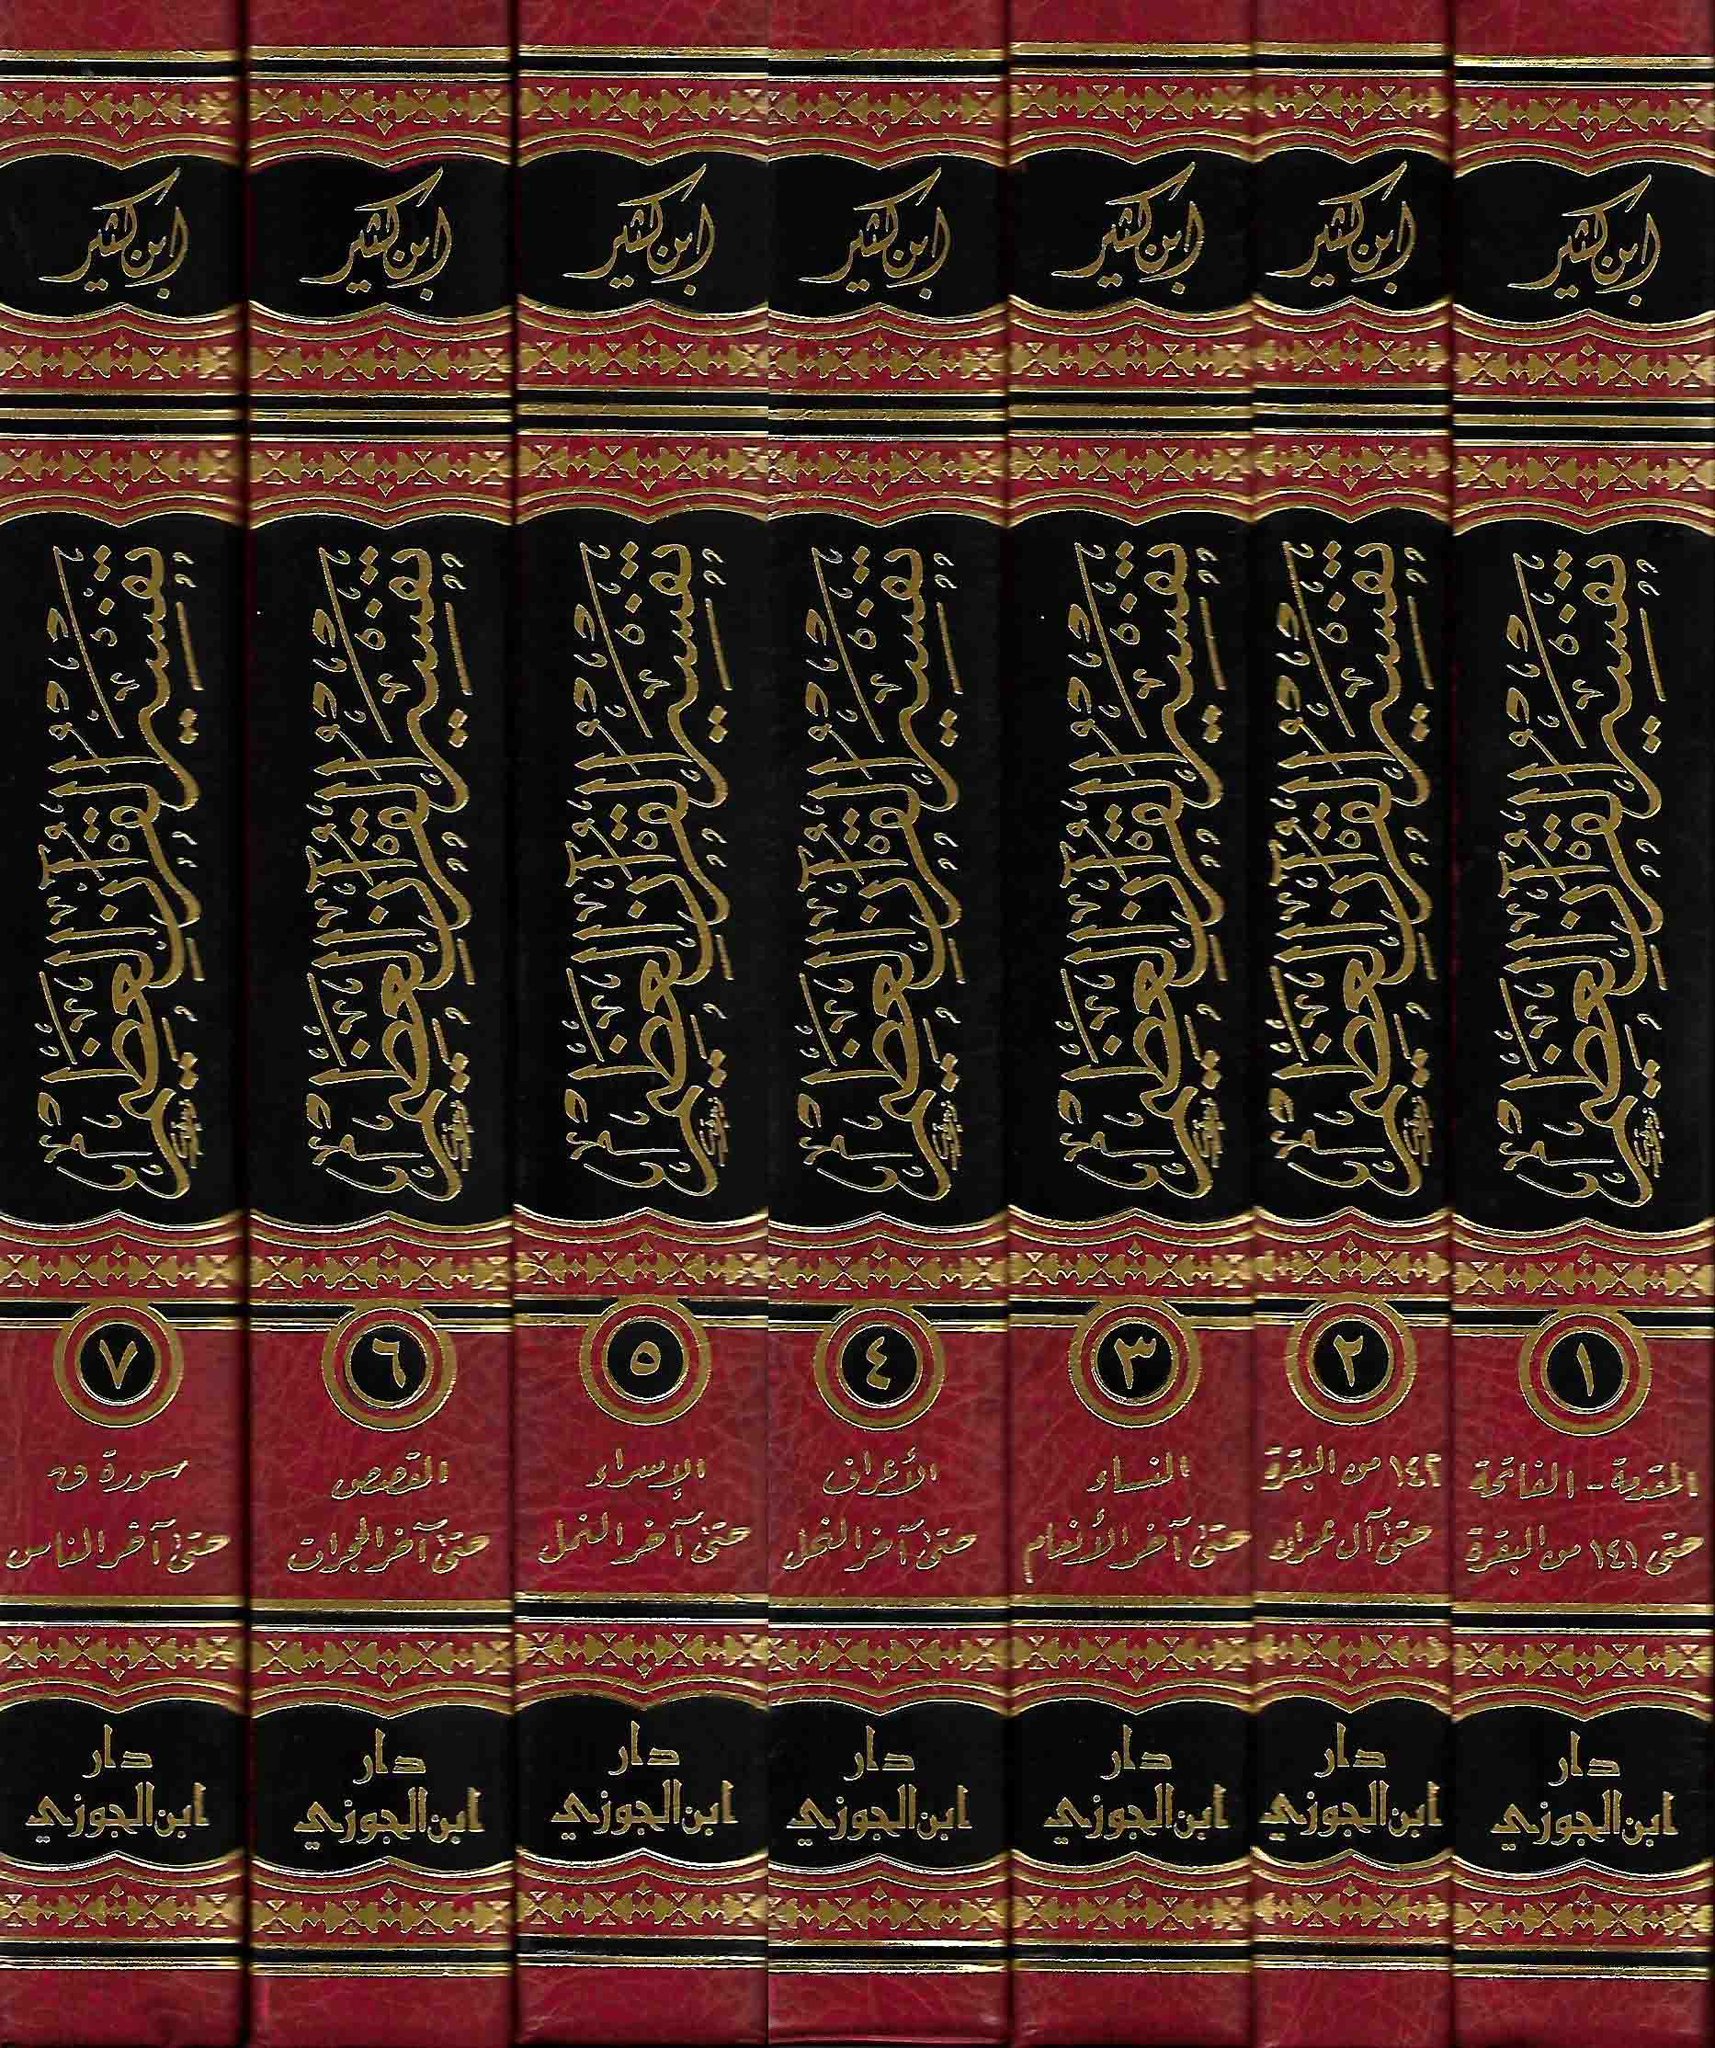 ابن كثير
تفسير القرآن العظيم
١
المقدمة - الفاتحة
حتى ١٤١ من البقرة
دار
ابن الجوزي
ابن كثير
تفسير القرآن العظيم
٢
١٤٢ من البقرة
حتى آل عمران
دار
ابن الجوزي
ابن كثير
تفسير القرآن العظيم
٣
النساء
حتى آخر الأنعام
دار
ابن الجوزي
ابن كثير
تفسير القرآن العظيم
٤
الأعراف
حتى آخر النحل
دار
ابن الجوزي
ابن كثير
تفسير القرآن العظيم
٥
الإسراء
حتى آخر النمل
دار
ابن الجوزي
ابن كثير
تفسير القرآن العظيم
٦
القصص
حتى آخر الحجرات
دار
ابن الجوزي
ابن كثير
تفسير القرآن العظيم
٧
سورة ق
حتى آخر الناس
دار
ابن الجوزي